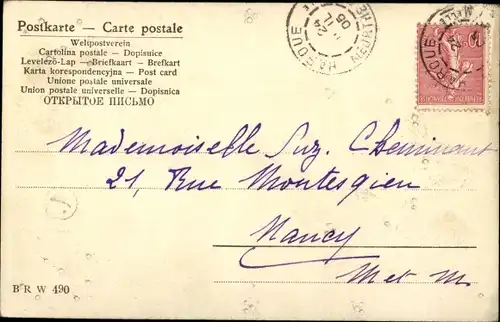 Postkarte — Carte postale
Weltpostverein
Cartolina postale — Dopisnice
Levelező-Lap — Briefkaart — Brefkort
Karta korespondencyjna — Post card
Unione postale universale
Union postale universelle — Dopisnica
ОТКРЫТОЕ ПИСЬМО
HAROUÉ
24
06
MEURTHE
Mademoiselle Suz. Cheminant
21, Rue Montesquieu
Nancy
M et M.
B R W 490